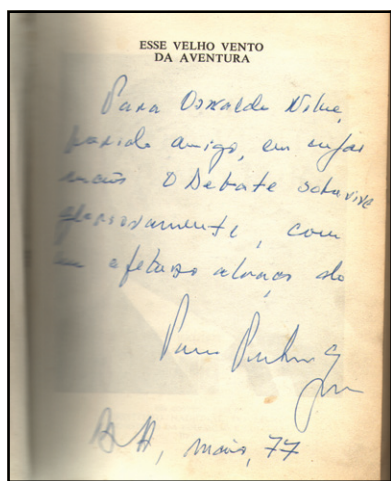 ESSE VELHO VENTO
DA AVENTURA
Para Oswaldo
querido amigo, em cujas
mãos O Debate sobrevive
gloriosamente, com
um afetuoso abraço do
BH, maio, 77